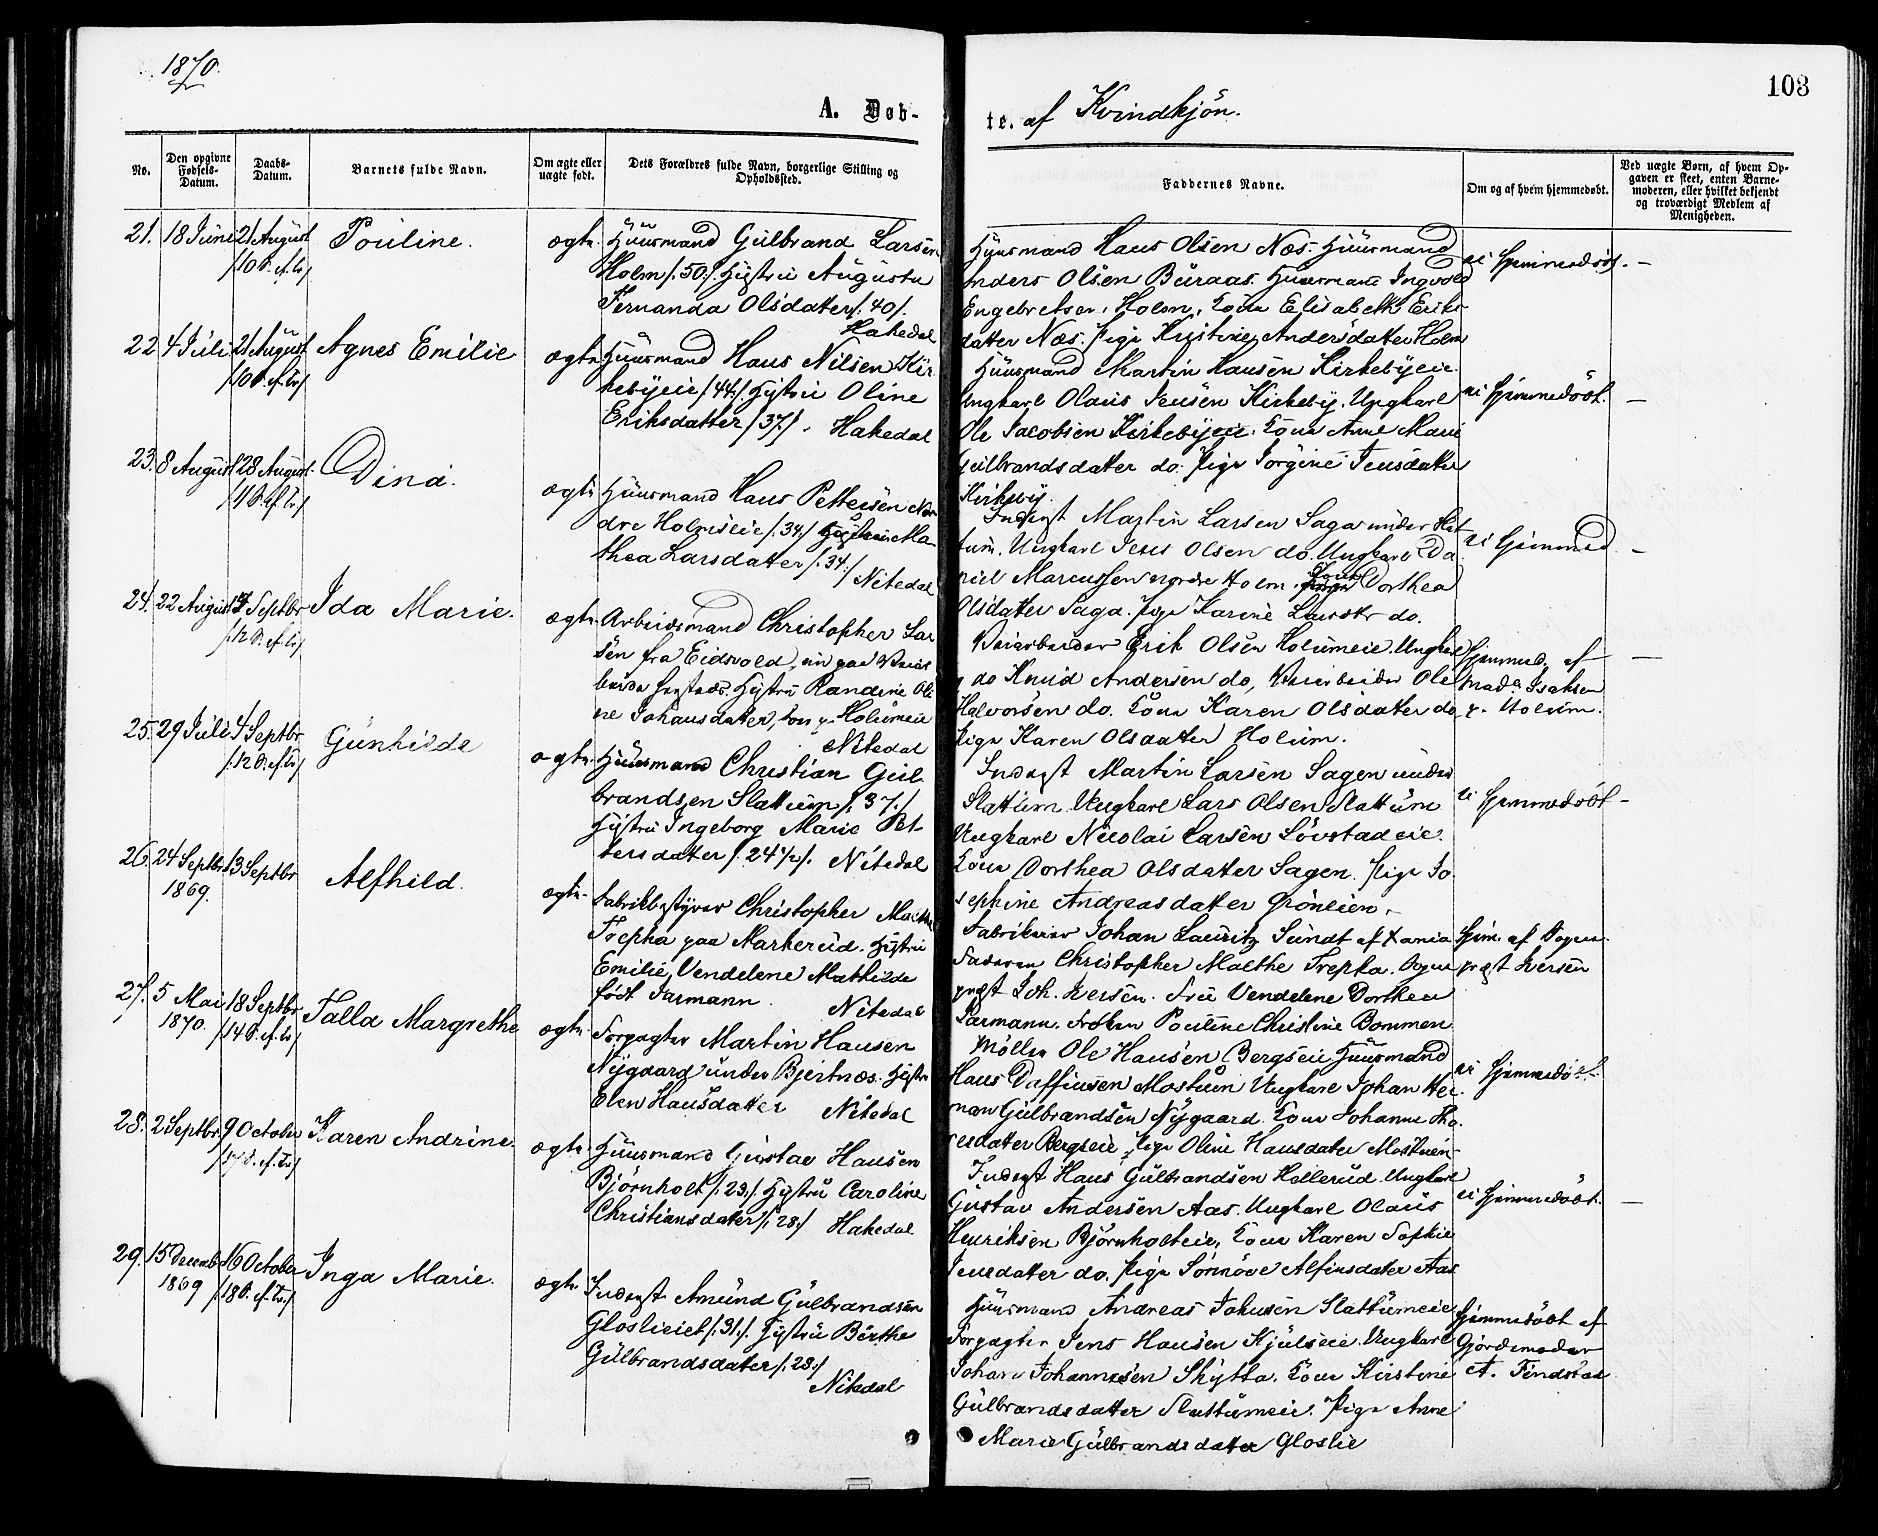 1870.
103
A. Døb-
te. af Kvindkjön.
No.
Den opgivne
Fødsels-
Datum.
Daabs-
Datum.
Barnets fulde Navn.
Om ægte eller
uægte født.
Dets Forældres fulde Navn, borgerlige Stilling og
Opholdssted.
Faddernes Navne.
Om og af hvem hjemmedøbt.
Ved uægte Børn, af hvem Op-
gaven er skeet, enten Barne-
moderen, eller hvilket bekjendt
og troværdigt Medlem af
Menigheden.
21.
18 Juni
21 August
/10 S. ef. Tr/
Pouline.
ægte
Huusmand Gulbrand Larsen
Holm /:50:/ Hustru Augusta
Fernanda Olsdatter /:40/.
Hakedal
Huusmand Hans Olsen Næs. Huusmand
Anders Olsen Buraas. Huusmand Ingvold
Engebretsen Holm, Kone Elisabeth Eriks-
datter Næs. Pige Kristine Andersdatter Holm
ei hjemmedøbt. —
22
4 Juli
21 August
/10 S. ef. Tr/
Agnes Emilie
ægte
Huusmand Hans Nilsen Kir-
kebyeie /44/ Hustru Oline
Eriksdatter /37/. Hakedal
Huusmand Martin Hansen Kirkebyeie.
Ungkarl Olaus Jensen Kirkeby. Ungkarl
Ole Jacobsen Kirkebyeie. Kone Anne Marie
Gulbrandsdatter do. Pige Jorgine Jensdatter
Kirkeby.
ei hjemmedøbt. —
23.
8 August
28 August
/11 S. ef. Tr/
Dina.
ægte
Huusmand Hans Pettersen Nor-
dre Holmseie /:34:/ Hustru Ma-
thea Larsdatter /:34:/
Nitedal
Inderst Martin Larsen Saga under Slat-
tum. Ungkarl Jens Olsen do. Ungkarl Da-
niel Marcussen nordre Holm. Kone Dorthea
Olsdatter Saga. Pige Karine Larsdtr do.
ei hjemmed —
24.
22 August
Septbr
/12 S. ef. Tr/
Ida Marie.
ægte
Arbeidsmand Christopher Lar-
sen fra Eidsvold,
Hustru Randine Oli-
ne Johansdatter, Holumeie
Nitedal
Veiarbeider Erik Olsen Holumeie. Ungkarl
do Knud Andersen do, Veiarbeider Ole
Halvorsen do. Kone Karen Olsdatter do
Pige Karen Olsdatter Holum.
Hjemmed. af
Isaksen
Holum. —
25.
29 Juli
4 Septbr
/12 S. ef. Tr/
Gunhilde
ægte
Huusmand Christian Gul-
brandsen Slattum /:37:/
Hustru Ingeborg Marie Pet-
tersdatter /:24½/. Nitedal
Inderst Martin Larsen Sagen under
Slattum. Ungkarl Lars Olsen Slattum
Ungkarl Nicolai Larsen Lövstadeie.
Kone Dorthea Olsdatter Sagen. Pige Jo-
sephine Andreasdatter Grönlien.
ei hjemmedøbt —
26.
24 Septbr
1869.
13 Septbr
Alfhild.
ægte
Fabrikbestyrer Christopher Malthe
Trepka paa Markerud. Hustru
Emilie Vendelene Mathilde
født Jarmann. Nitedal
Fabrikeier Johan Lauritz Sundt af Xania
Faderen Christopher Malthe Trepka. Sogne-
præst Joh. Iversen. Fru Vendelene Dorthea
Jarmann. Frøken Pouline Christine Bommen
Hjem. af Sogne-
præst Iversen
27.
5 Mai
1870.
18 Septbr
/14 S. ef. Tr/
Talla Margrethe
ægte
Forpagter Martin Hansen
Nygaard under Bjertnæs. Hustru
Elen Hansdatter Nitedal
Møller Ole Hansen Bergseie Huusmand
Hans Daffinsen Mostuen Ungkarl Johan Her-
man Gulbrandsen Nygaard. Kone Johanne Tho-
resdatter Bergseie, Pige Oline Hansdatter Mostuen
ei hjemmedøbt
28.
2 Septbr.
9 October
/17 S. ef. Tr/
Karen Andrine.
ægte
Huusmand Gustav Hansen
Björnholt /:23:/. Hustru Caroline
Christiansdatter /:28:/ Hakedal
Inderst Hans Gulbrandsen Hellerud. Ungkarl
Gustav Andersen Aas. Ungkarl Olaus
Henriksen Björnholteie, Kone Karen Sofhie
Jensdatter do. Pige Sörnöve Alfinsdatter Aas
ei hjemmedøbt. —
29.
15 Decemb
1869
16 October
/18 S. ef. Tr./
Inga Marie.
ægte
Inderst Amund Gulbrandsen
Gloslieiet /:31:/. Hustru Berthe
Gulbrandsdatter /:28:/
Nitedal
Huusmand Andreas Johnsen Slattumeie
Forpagter Jens Hansen Kjulseie. Ungkarl
Johan Johannesen Skytta. Kone Kirstine
Gulbrandsdatter Slattumeie. Pige Anne
Marie Gulbrandsdatter Gloslie
Hjemmedøbt af
Gjordemoder
A. Findstad